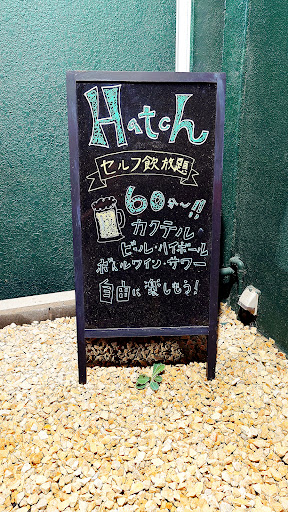 Hatch
セルフ飲放題
60分〜!!
カクテル
ビール・ハイボール
ボトルワイン・サワー
自由に楽しもう!